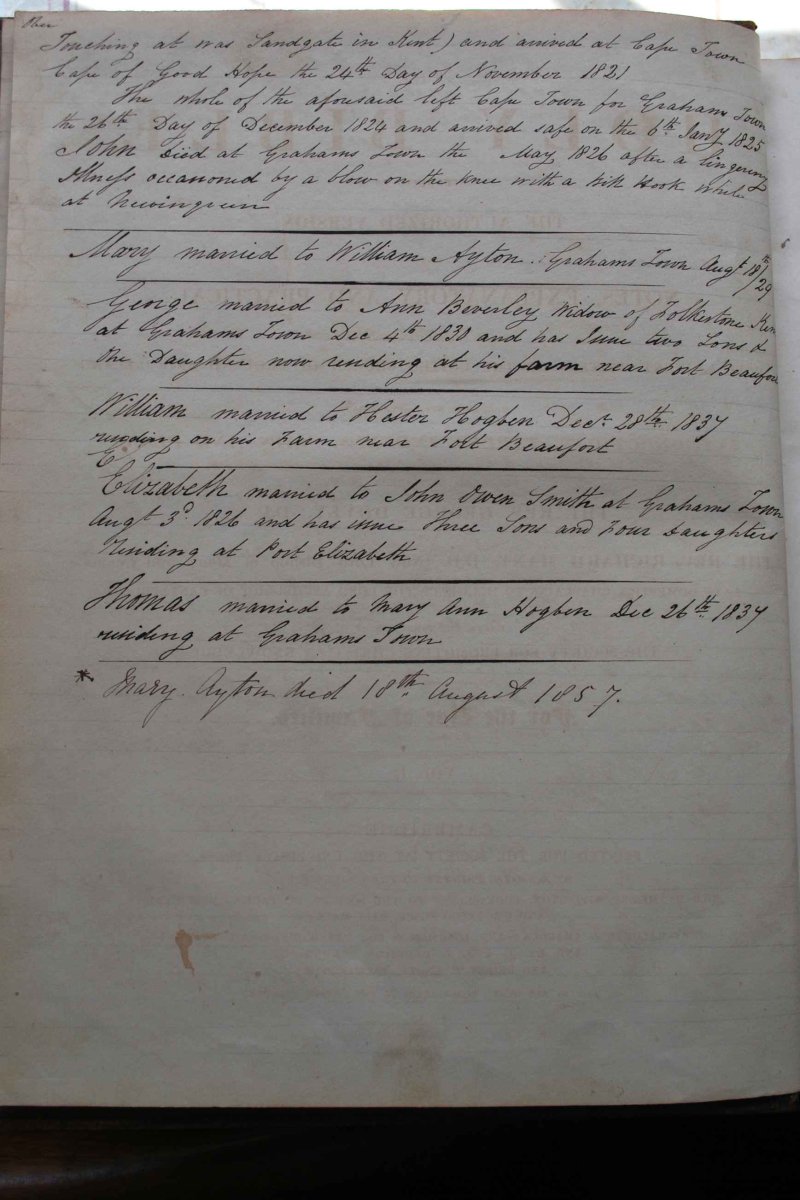 Over
Touching at was Sandgate in Kent) and arrived at Cape Town
Cape of Good Hope the 24th Day of November 1821
The whole of the aforesaid left Cape Town for Grahams Town
the 26th Day of December 1824 and arrived safe on the 6th Jany 1825
John Died at Grahams Town the May 1826 after a lingering
Illness occasioned by a blow on the knee with a Bill Hook while
at Newingreen
Mary married to William Ayton. Grahams Town Augt 18th/29
George married to Ann Beverley Widow of Folkestone Kent
at Grahams Town Dec 4th 1830 and has Issue two Sons &
One Daughter now residing at his farm near Fort Beaufort
William married to Hester Hogben Decr 28th 1837
residing on his Farm near Fort Beaufort
Elizabeth married to John Owen Smith at Grahams Town
Augt 3d 1826 and has issue Three Sons and Four Daughters
residing at Port Elizabeth
Thomas married to Mary Ann Hogben Dec 26th 1837
residing at Grahams Town
* Mary Ayton died 18th August 1857.